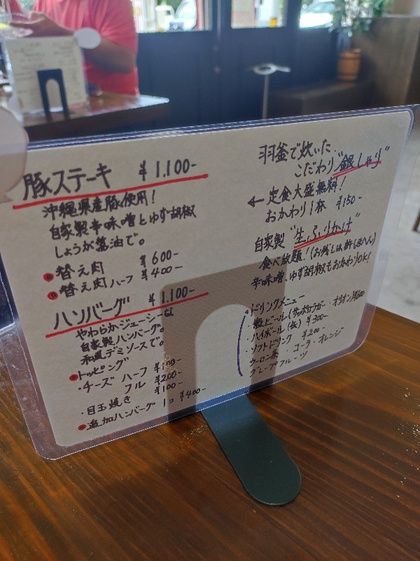 豚ステーキ ¥1.100-
沖縄県産豚使用！
自家製辛味噌とゆず胡椒
しょうが醤油で。
替え肉 ¥600-
替え肉ハーフ ¥400-
ハンバーグ ¥1.100-
やわらかジューシーな
自家製ハンバーグ。
和風デミソースで。
トッピング
・チーズ ハーフ ¥100-
フル ¥200-
・目玉焼き ¥100-
追加ハンバーグ 1コ ¥400-
羽釜で炊いた
こだわり"銀しゃり"
← 定食大盛無料！
おかわり1杯 ¥150-
自家製"生ふりかけ"
食べ放題！
辛味噌、ゆず胡椒もおかわりOK！
ドリンクメニュー
・ハイボール(缶) ¥300-
・ソフトドリンク ¥200-
ウーロン茶・コーラ・オレンジ
グレープフルーツ